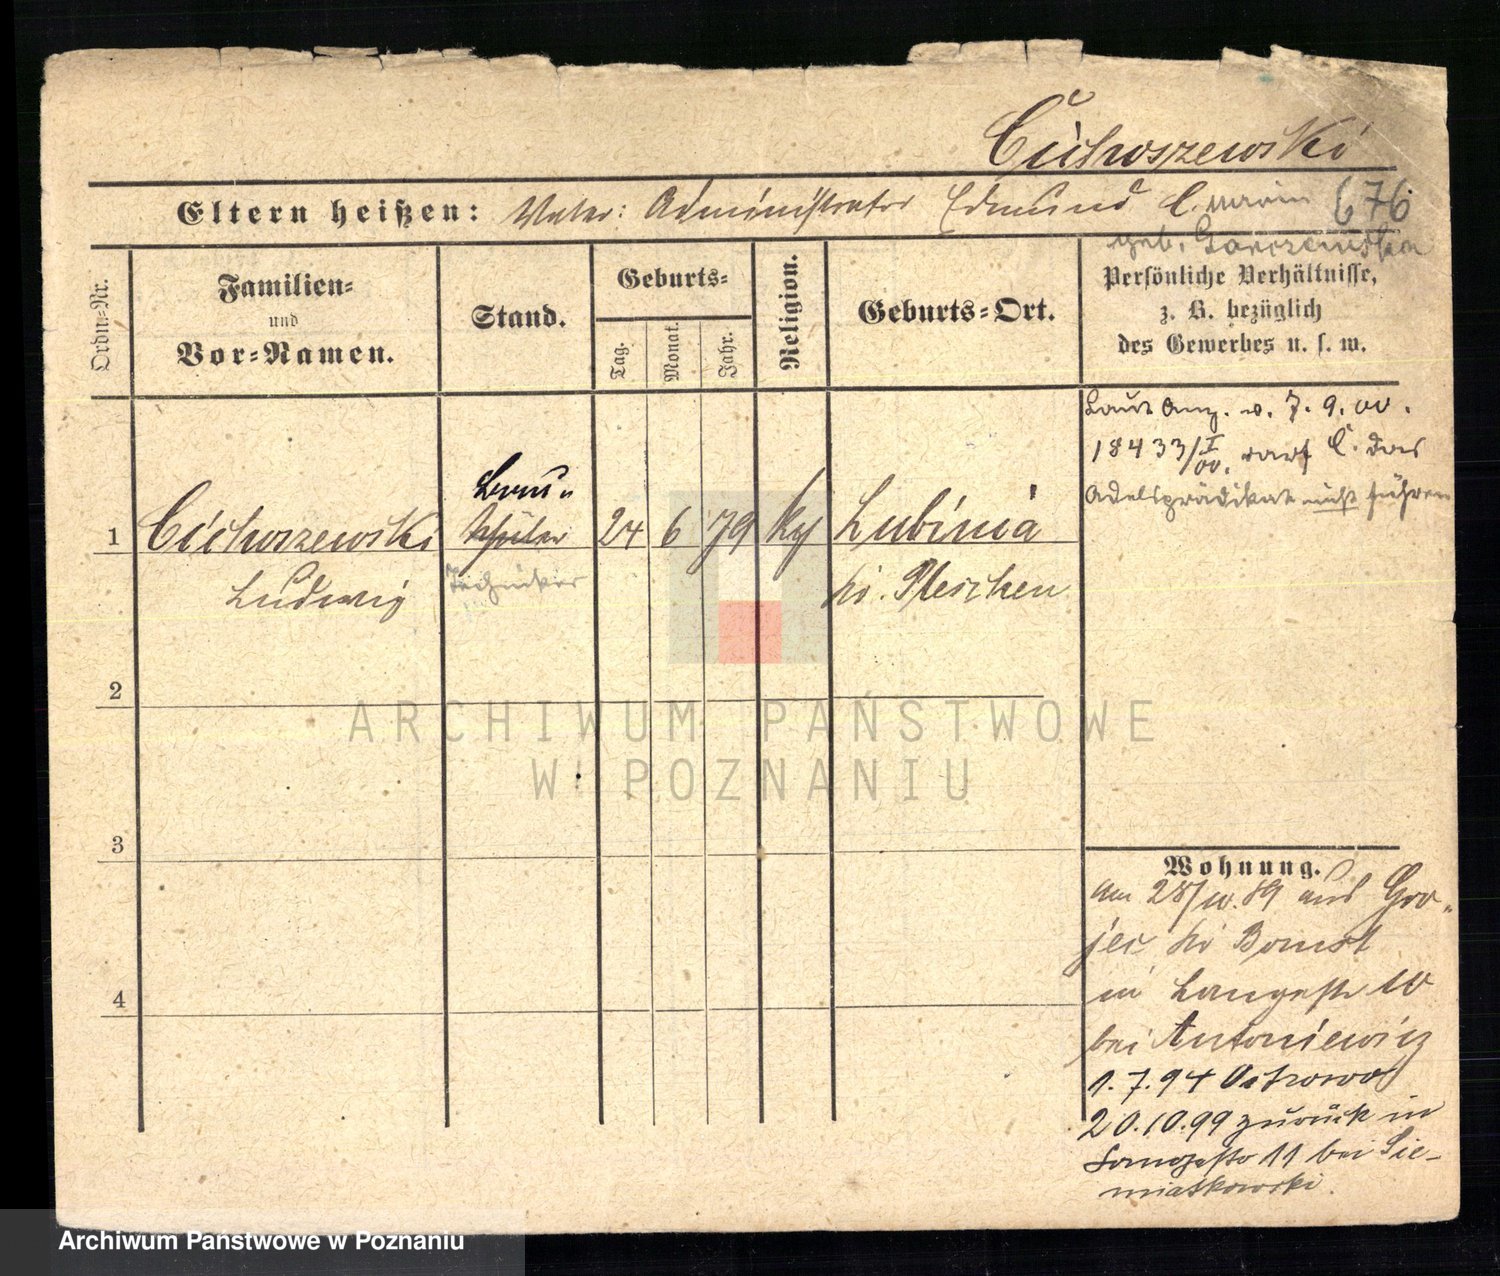 Cichoszewski
Eltern heißen: Vater: Administrator Edmund C. 676
geb.
Ordn.-Nr.
Familien-
und
Vor-Namen.
Stand.
Geburts-
Tag.
Monat.
Jahr.
Religion.
Geburts-Ort.
Persönliche Verhältnisse,
z. B. bezüglich
des Gewerbes u. s. w.
Laut Anz. v. 7. 9. 00.
18433/I 00. darf C. das
Adelsprädikat nicht führen
1
Cichoszewski
Ludwig
Bau-
Schüler
Techniker
24
6
79
Lubinia
Kr. Pleschen
2
3
4
Wohnung.
am 28/10.89 aus Gro-
jec Kr Bomst
in Langestr 10
bei Antoniewicz
1.7.94 Ostrowo
20.10.99 zurück in
Langestr 11 bei Sie-
miatkowski.
ARCHIWUM PAŃSTWOWE
W POZNANIU
Archiwum Państwowe w Poznaniu